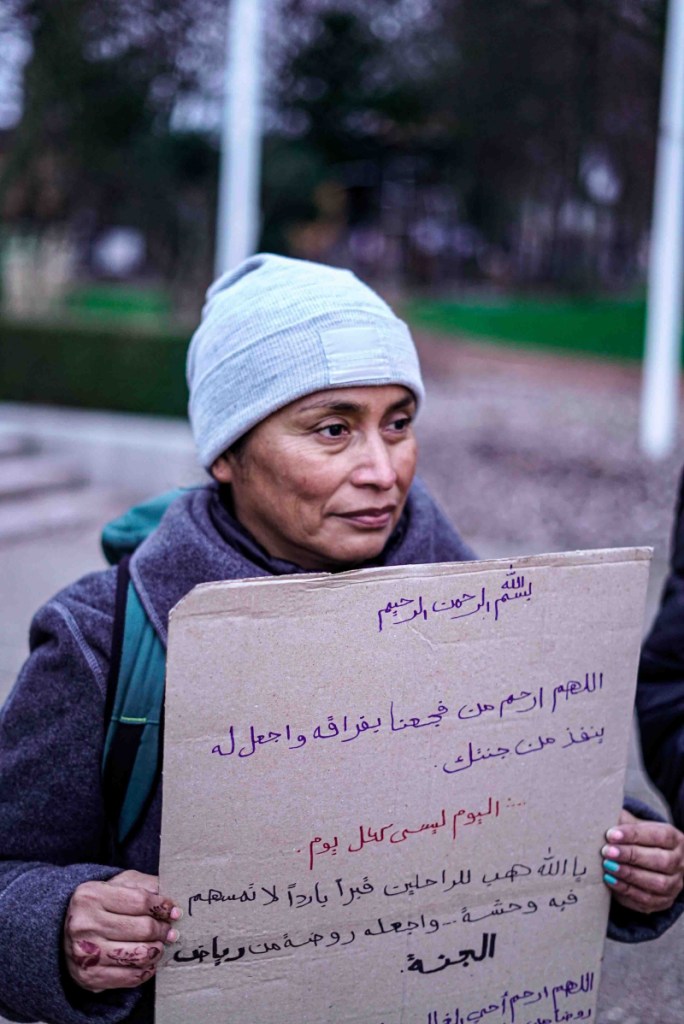 بسم الله الرحمن الرحيم
اللهم ارحم من فجعنا بفراقه واجعل له
ينفذ من جنتك.
... اليوم ليس ككل يوم.
يا الله هب للراحلين قبراً بارداً لا تمسهم
فيه وحشة... واجعله روضة من رياض
الجنة.
اللهم ارحم أخي
روضة من